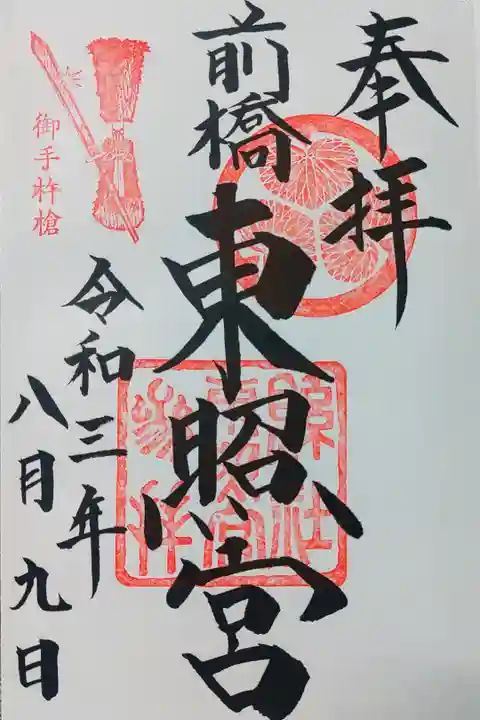 奉拝
前橋
東照宮
令和三年
八月九日
御手杵槍